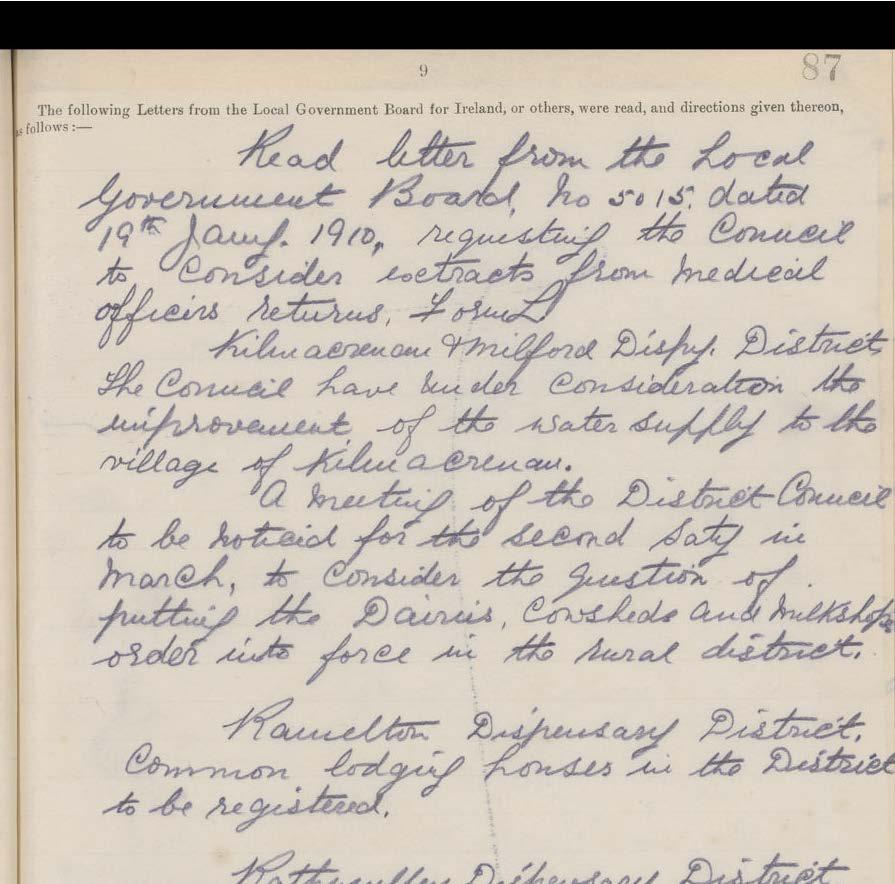 9
87
The following Letters from the Local Government Board for Ireland, or others, were read, and directions given thereon,
as follows :—
Read letter from the Local
Government Board, No 5015, dated
19th Jany. 1910, requesting the Council
to consider extracts from Medical
officers returns, Form L
Kilmacrenan & Milford Dispy. District
The Council have under consideration the
improvement of the water supply to the
village of Kilmacrenan.
A meeting of the District Council
to be noticed for the second Saty in
March, to consider the question of
putting the Dairies, Cowsheds and Milkshops
order into force in the rural district.
Ramelton Dispensary District.
Common lodging houses in the District
to be registered.
Rathmullen Dispensary District